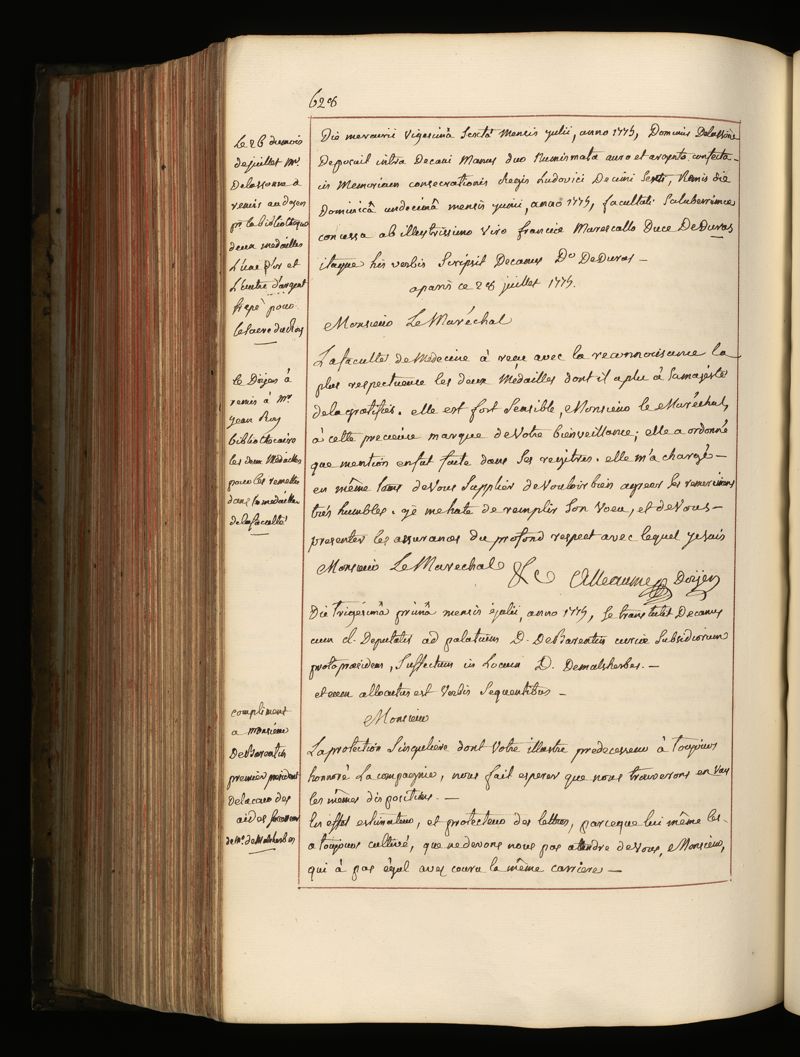 628
Le 26 du mois
de juillet Mr
Delassonne a
remis au doyen
pr la bibliotheque
deux medailles
L'une d'or et
L'autre d'argent
frapé pour
le sacre du Roy
Die mercurii vigesimâ sextâ mensis julii, anno 1775, Dominus Delassone
Deposuit intra Decani manus duo numismata auro et argento confecta
in memoriam consecrationis Regis Ludovici Decimi sexti, Remis die
Dominicâ undecimâ mensis junii, anno 1775, facultati saluberrimae
concessa ab illustrissimo viro franciae Marescallo Duce DeDuras
itaque his verbis scripsit Decanus Do DeDuras –
a paris ce 28 juillet 1775.
Monsieur Le Maréchal
le Doyen â
remis â Mr
Jean Roy
bibliothecaire
les deux Médailles
pour les remettre
dans la medaille
de la faculté
La faculté de Médecine â recu avec la reconnoissance la
plus respectueuse les deux Médailles dont il a plu â sa majésté
de la gratifiés. elle est fort sensible, Monsieur le Maréchal,
â cette precieuse marque de votre bienveillance; elle a ordonné
que mention en fut faite dans ses registres. elle m'a chargé –
en même tems de vous supplier de vouloir bien agreer ses remerciments
très humbles. je me hate de remplir son voeu, et de vous –
presenter les assurances du profond respect avec lequel je suis
Monsieur Le Marechal &c Alleaume Doijen
Die trigesimâ primâ mensis julii, anno 1775, se transtulit Decanus
cum d. Deputatis ad palatium D. DeBarentin curiae subsidiorum
protopraesidem, suffectum in Locum D. Demalsherbes. –
et eum allocutus est verbis sequentibus –
Monsieur
compliment
a monsieur
DeBarentin
premier president
de la cour des
aides successeur
de Mr. de Malsherbes
La protection singuliere dont votre illustre predecesseur â toujours
honnoré La compagnie, nous fait esperer que nous trouverons en vous
les mêmes dispositions. –
En effet estimateur, et protecteur des lettres, parceque lui même les
a toujours cultivé, que ne devons nous pas attendre de vous, Monsieur,
qui â pas égal avez couru la même carriere –